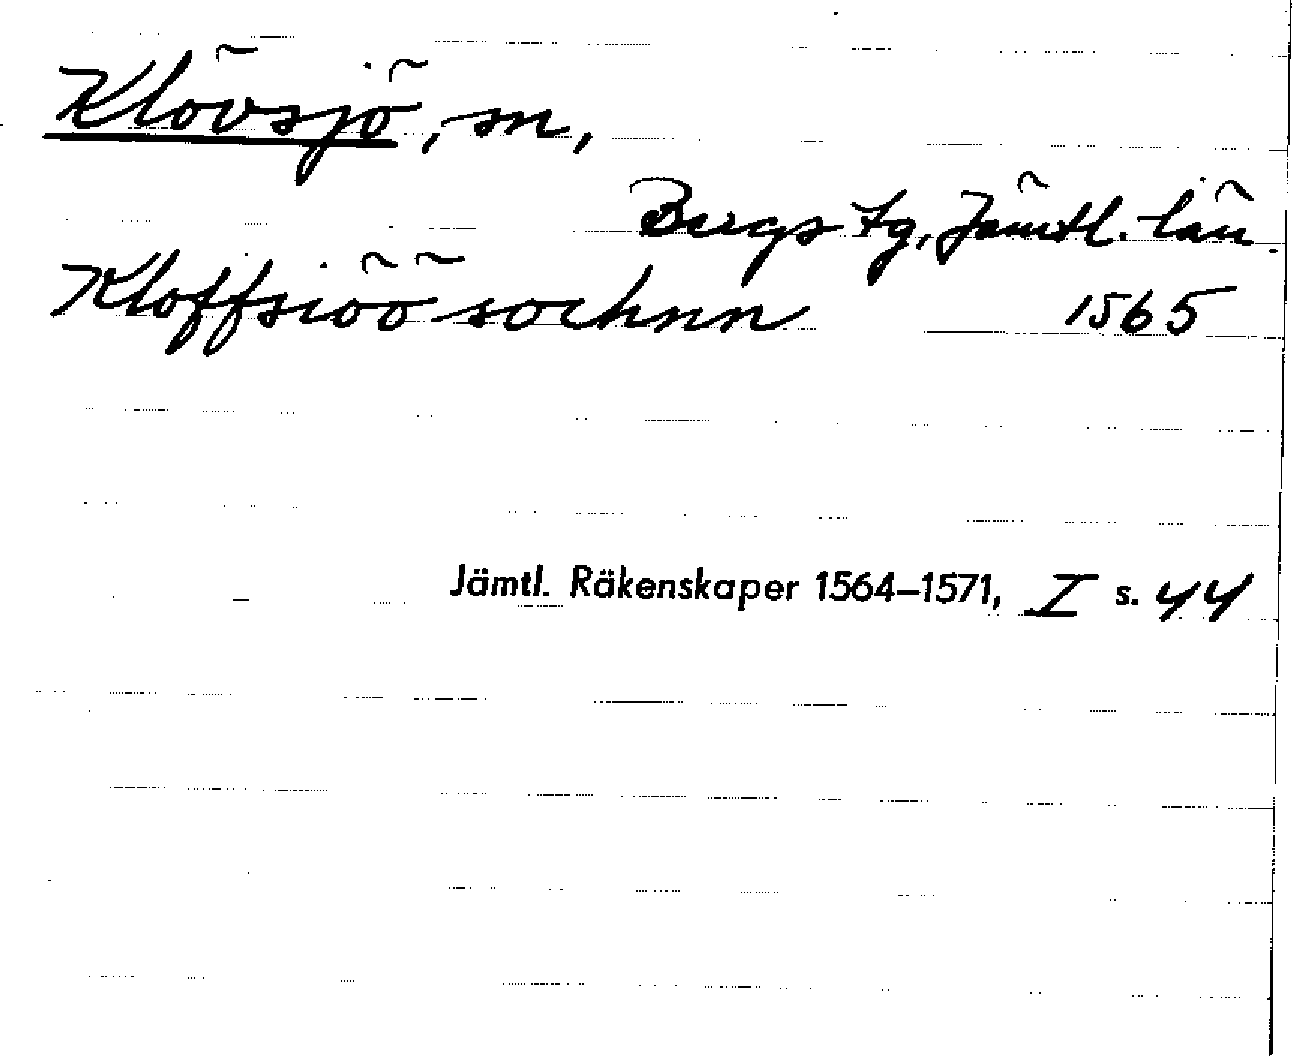 Klövsjö, sn,
Bergs tg, Jämtl. län.
Kloffsiöö sochnn 1565
Jämtl. Räkenskaper 1564–1571, I s. 44